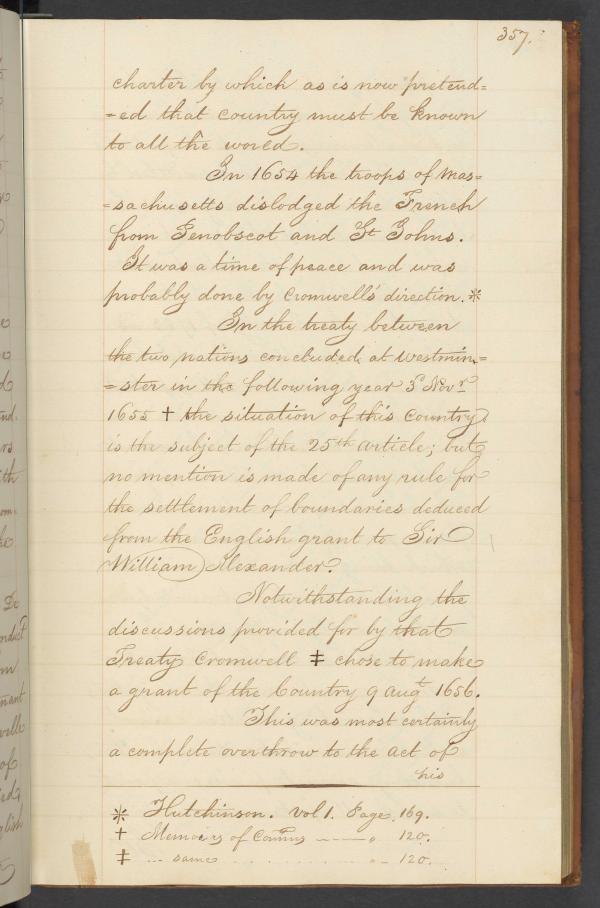 357.
charter by which as is now pretend=
=ed that country must be known
to all the world.
In 1654 the troops of Mas=
=sachusetts dislodged the French
from Penobscot and St Johns.
It was a time of peace and was
probably done by Cromwell's direction. *
In the treaty between
the two nations concluded at Westmin=
=ster in the following year 3d Novr
1655 † the situation of this Country
is the subject of the 25th article; but
no mention is made of any rule for
the settlement of boundaries deduced
from the English grant to Sir
William Alexander.
Notwithstanding the
discussions provided for by that
Treaty Cromwell ‡ chose to make
a grant of the Country 9 Augt 1656.
This was most certainly
a complete overthrow to the act of
his
* Hutchinson. Vol 1. Page. 169.
† Memoirs of Comms —— " 120.
‡ ... same . . . . . . . . " 120.